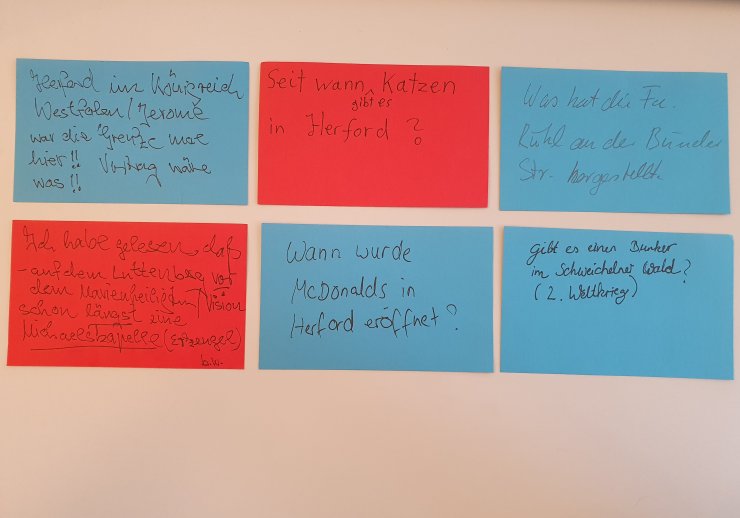 Herford im Königreich
Westfalen / Jerome
war die Grenze mal
hier!! Vortrag wäre
was!!
Seit wann gibt es Katzen
in Herford ?
Was hat die Fa.
Rühl an der Bünder
Str. hergestellt
Ich habe gelesen, daß
- auf dem Luttenberg vor
dem Marienheiligtum / Vision
schon längst eine
Michaelskapelle (Erzengel)
b.w.
Wann wurde
McDonalds in
Herford eröffnet?
Gibt es einen Bunker
im Schweichelner Wald?
(2. Weltkrieg)